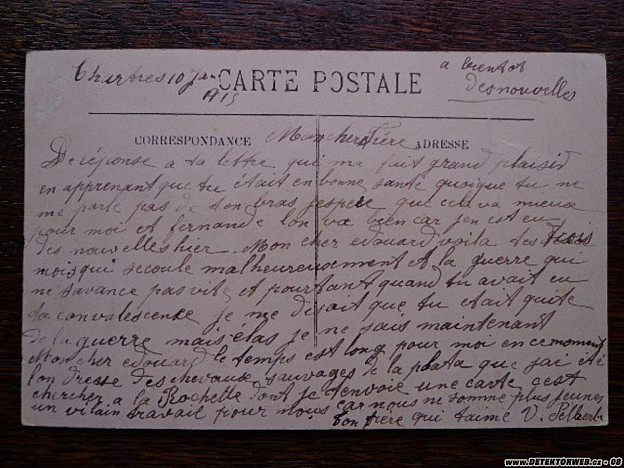 Chartres 10 Jan CARTE POSTALE a bientot
1915 des nouvelles
CORRESPONDANCE Mon cher Frère ADRESSE
De réponse a ta lettre qui ma fait grand plaisir
en apprenant que tu était en bonne santé quoique tu ne
me parle pas de ton bras jespere que cela va mieux
pour moi et fernande lon va bien car jen est eu
des nouvelles hier. Mon cher edouard voila des trois
mois qui secoule malheureusement et la guerre qui
ne savance pas vite et pourtant quand tu avait eu
ta convalescence je me disait que tu etait quite
de la guerre mais élas je ne sais maintenant
Mon cher edouard le temps est long pour moi en ce moment
lon dresse des chevaux sauvages de la plata que jai été
chercher a la Rochelle dont je tenvoie une carte cest
un vilain travail pour nous car nous ne somme plus jeunes
ton frère qui taime V.
www.DETEKTORWEB.cz - 08